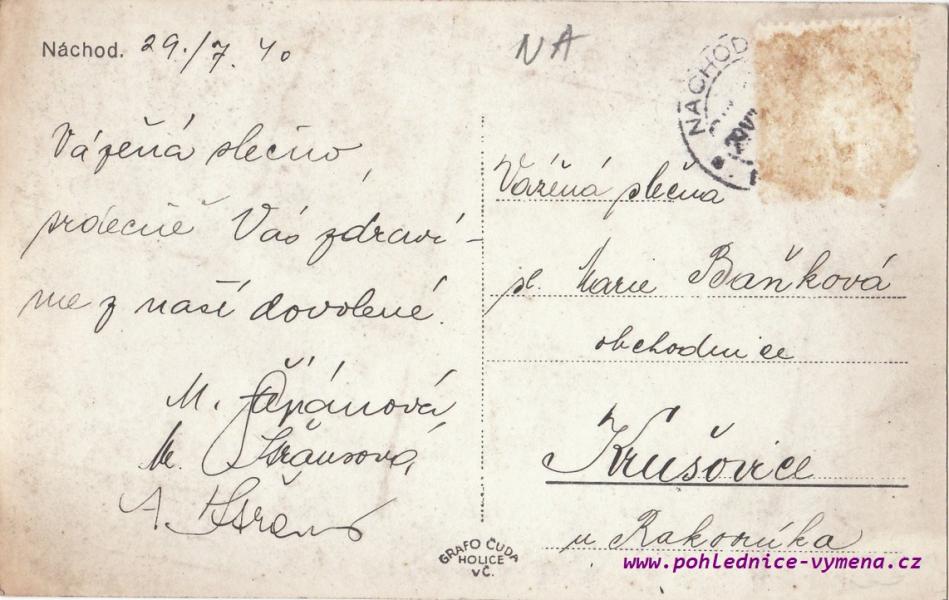 Náchod. 29./7. 40
NA
NÁCHOD
Vážená slečno
srdečně Vás zdraví-
me z naší dovolené.
M.
M.
A.
Vážená slečna
sl. Marie Baňková
obchodnice
Krušovice
u Rakovníka
GRAFO ČUDA
HOLICE
V Č.
www.pohlednice-vymena.cz